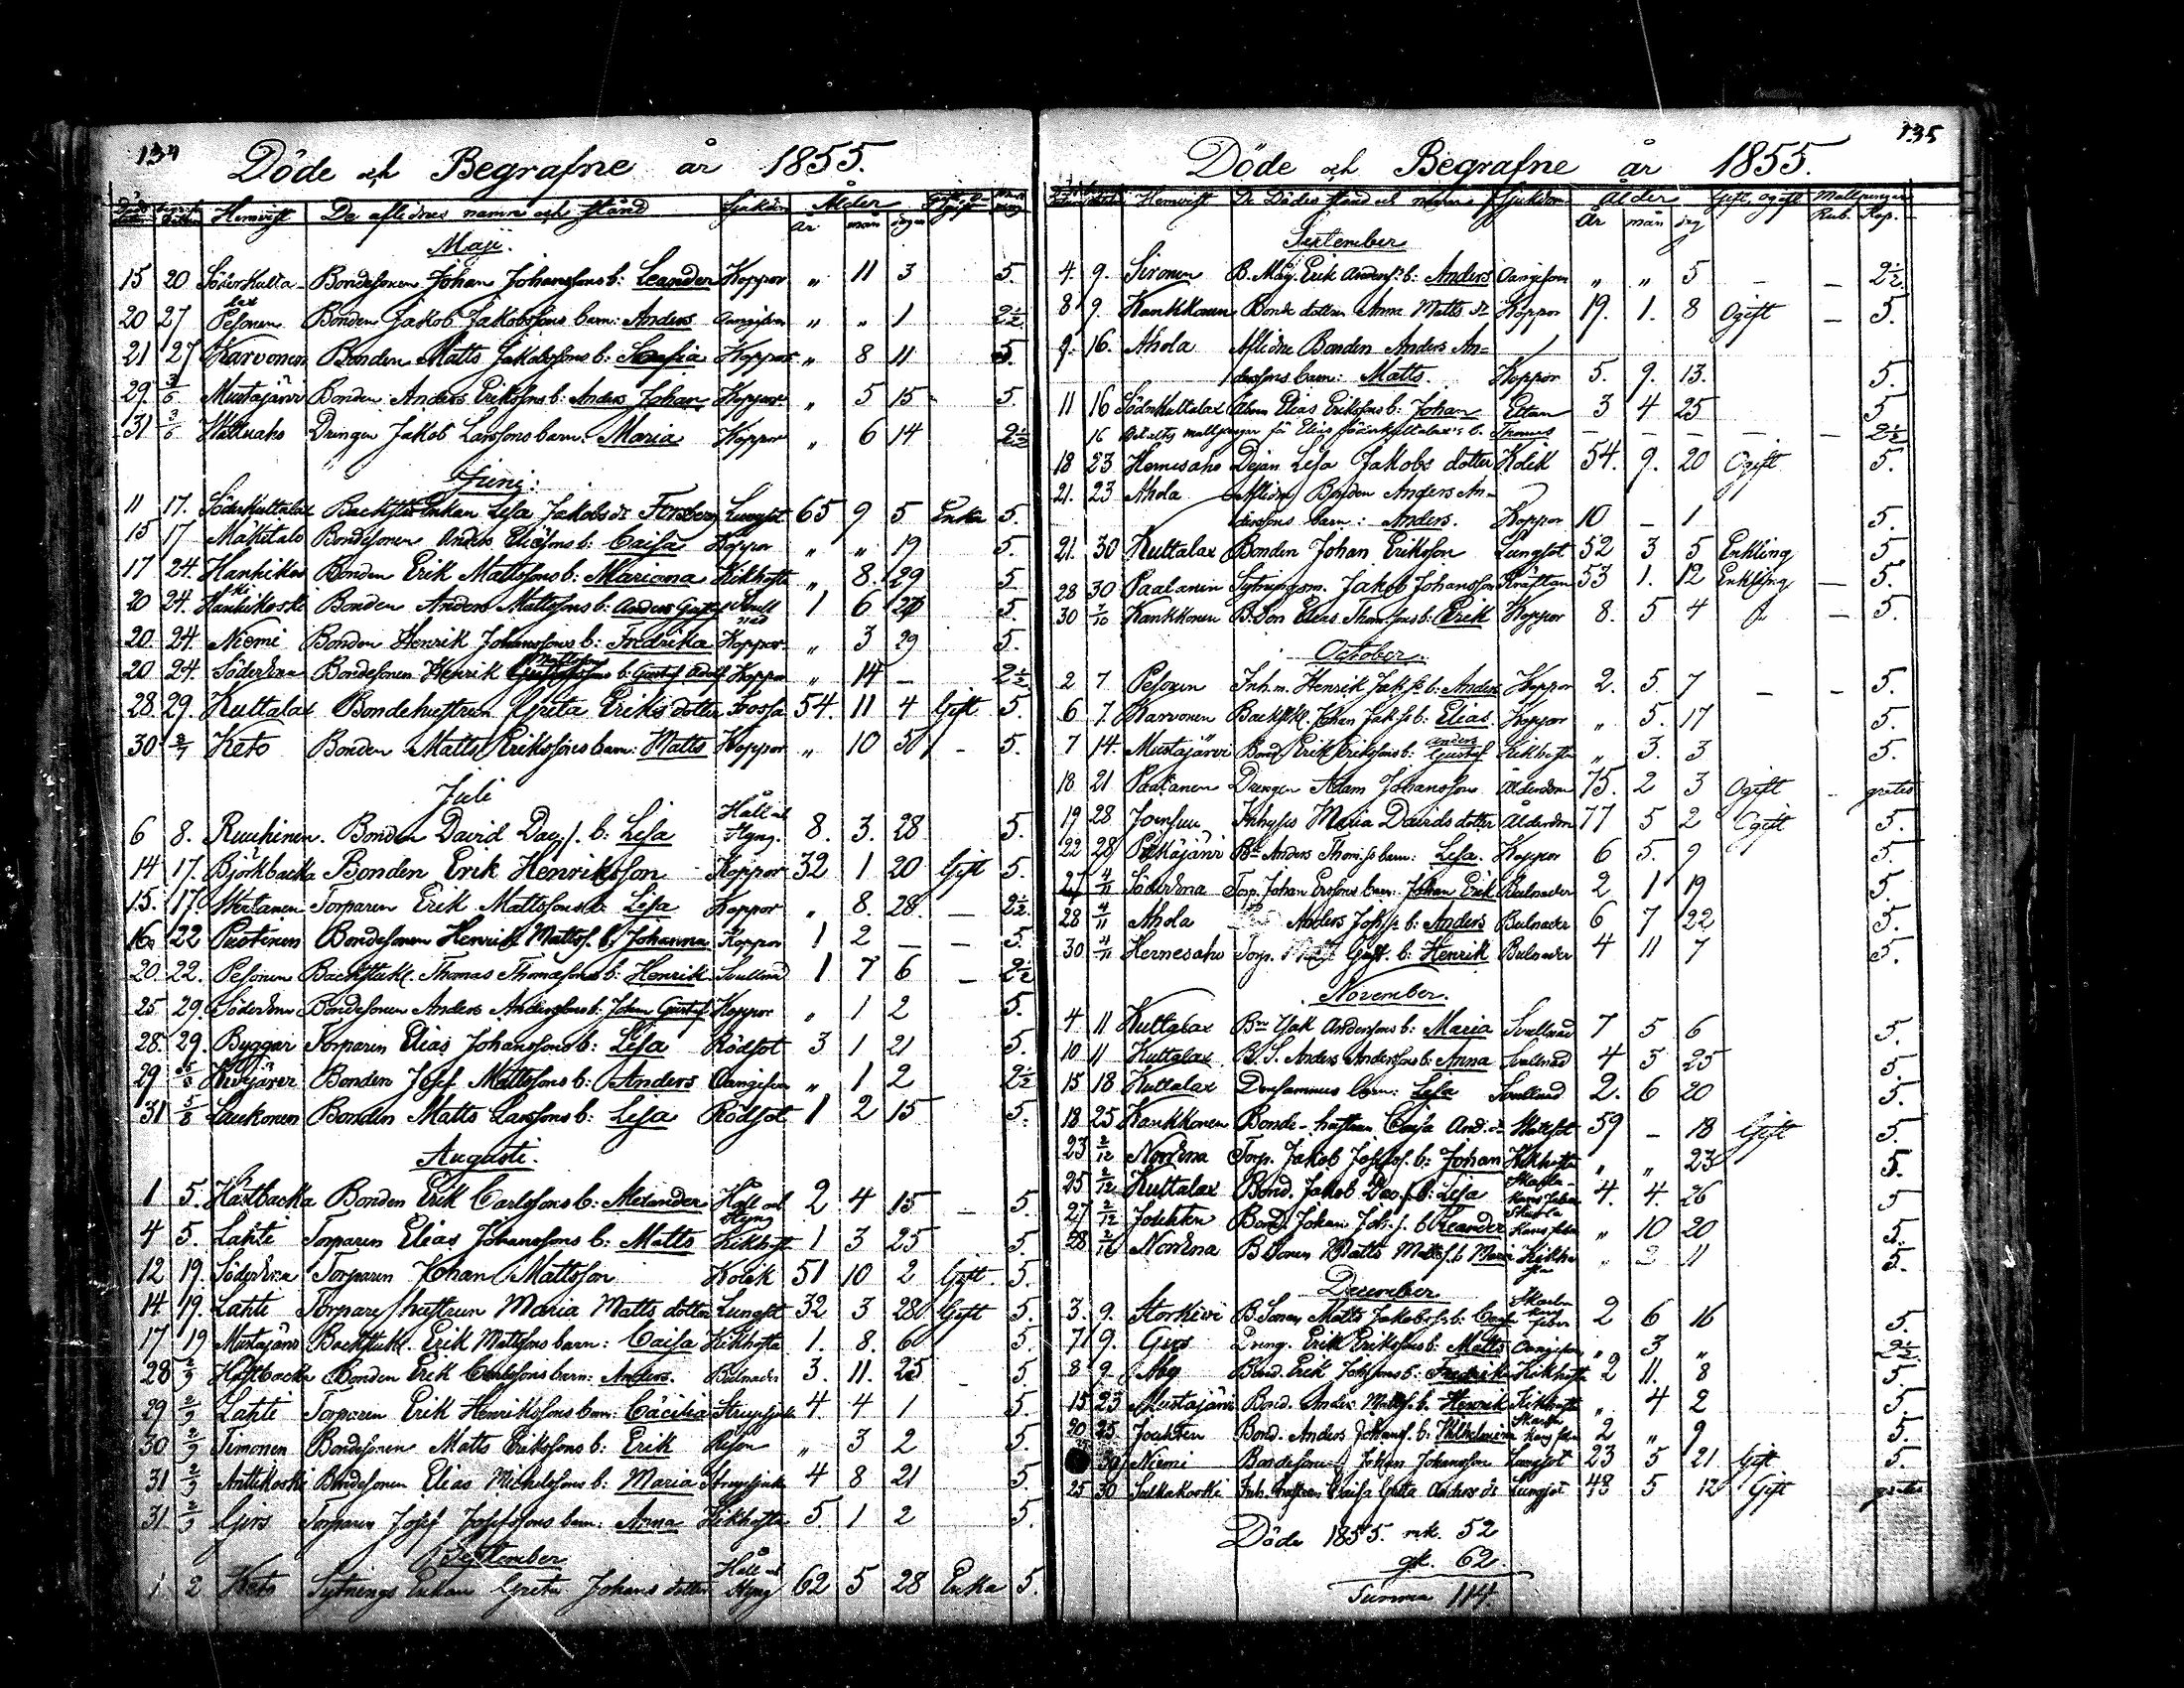 134
Döde och Begrafne år 1855.
Hemvist De aflidnes namn och stånd Sjukdom Ålder
år mån dagar
Maji.
15 20 Söderkulta- Bondesonen Johan Johanssons b: Leander Koppor " 11 3 5.
lax
20 27 Pesonen Bonden Jakob Jakobssons barn: Anders " " 1 2½
21 27 Karvonen Bonden Matts Jakobssons b: Koppor " 8 11 5.
29. 3/6 Mustajärvi Bonden Anders Erikssons b: Anders Johan Koppor " 5 15 5.
31 3/6 Drängen Jakob Larssons barn: Maria Koppor " 6 14 2½
Junij:
11 17. Söderkultalax Backstu Enkan Lisa Jakobs dr Forsberg Lungsot 65 9 5 Enka 5.
15 17 Mäkitalo Bondesonen Anders Eliassons b: Caisa Koppor " " 19 5.
17 24. Bonden Erik Mattssons b: Mariana Kikhosta " 8. 29 5
20 24. Bonden Anders Mattssons b: Anders Gustaf 1 6 5.
20. 24. Niemi Bonden Henrik Johanssons b: Fredrika Koppor " 3 29 5.
Mattssons
20 24. Söderena Bondesonen Henrik b: Gustaf Adolf Koppor " 14 — 2½
28. 29. Kultalax Bondehustrun Greta Eriks dotter Frossa 54. 11 4 Gift 5.
30 3/7 Keto Bonden Matts Erikssons barn: Matts Koppor " 10 5.
Juli
Håll och
6 8. Bonden David Dav.s. b: Lisa Styng. 8. 3. 28 5.
14 17. Björkbacka Bonden Erik Henriksson Koppor 32 1 20 Gift 5.
15. 17. Wertanen Torparen Erik Mattssons b: Lisa Koppor " 8. 28. — 2½
16. 22 Puotinen Bondesonen Henrik Mattss. b: Johanna Koppor 1 2 — — 5.
20. 22. Pesonen Backstukl. Thomas Thomassons b: Henrik Svullnad 1. 7 6 — 2½
25 29. Söderena Bondesonen Anders Anderssons b: Johan Gustaf Koppor " 1 2 5.
28. 29. Byggar Torparen Elias Johanssons b: Lisa Rödsot 3 1 21 5.
29 5/8 Kivijärvi Bonden Josef Mattssons b: Anders Oangifven " 1 2 2½
31 5/8 Laukonen Bonden Matts Larssons b: Lisa Rödsot 1 2 15 5.
Augusti.
1 5. Hästbacka Bonden Erik Carlssons b: Alexander Håll och 2 4 15 — 5.
Styng
4 5. Lahti Torparen Elias Johanssons b: Matts Kikhost. 1 3 25 5.
12 19. Söderena Torparen Johan Mattsson Kolik 51 10 2 Gift 5.
14. 19. Lahti Torpare hustrun Maria Matts dotter Lungsot 32 3 28 Gift 5.
17 19 Mustajärvi Backstukl. Erik Mattssons barn: Caisa Kikhosta 1. 8. 6 5.
28 2/9 Hästbacka Bonden Erik Carlssons barn: Anders. Bulnader 3. 11. 25 — 5
29 2/9 Lahti Torparen Erik Henrikssons barn: Cäcilia Strypsjuka 4. 4 1 5
30 2/9 Timonen Bondesonen Matts Erikssons b: Erik Risen " 3 2 5.
31 2/9 Anttikoski Bondesonen Elias Michelssons b: Maria Strypsjuka 4 8 21 5.
31. 2/9 Girs Torparen Josef Josefssons barn: Anna Kikhosta 5. 1 2 5.
September
1 2 Keto Sytnings Enkan Greta Johans dotter Håll och 62 5 28 Enka 5.
Styng
135
Döde och Begrafne år 1855.
Hemvist De Dödes stånd och namn Sjukdom Ålder Gift, ogift Mullpengar
År mån dag Rub. Kop.
September
4. 9. Sironen B. Måg. Erik Anderss. b: Anders Oangifven " " 5 — — 2½.
8 9. Kankkonen Bonde dottren Anna Matts dr Koppor 19. 1. 8 Ogift — 5.
9. 16. Ahola Aflidne Bonden Anders An=
derssons barn: Matts. Koppor 5. 9. 13. 5.
11 16 Söderkultalax Elias Erikssons b: Johan Eltan 3 4 25 5
16 mullpengar för Elias Söderkultalax's b. Thomas — — — — — 2½
18 23 Hernesaho Pigan Lisa Jakobs dotter Kolik 54. 9. 20 Ogift 5.
21. 23 Ahola Aflidne Bonden Anders An=
derssons barn: Anders. Koppor 10 — 1 5.
21. 30 Kultalax Bonden Johan Eriksson Lungsot 52 3 5 Enkling 5
28 30 Paalanen Sytningsm. Jakob Johansson Kräftan 53 1. 12 Enkling — 5.
30 7/10 Kankkonen B.Son Elias Thom.sons b: Erik Koppor 8. 5 4 — 5.
October.
2 7 Pesonen Inh.m. Henrik Jak.ss. b: Anders Koppor 2. 5 7 — — 5.
6 7. Karvonen Backstkl. Johan Jak.ss. b: Elias. Koppor " 5. 17 5.
Anders
7 14. Mustajärvi Bond. Erik Erikssons b: Gustaf Kikhosta " 3. 3 5.
18 21 Paalanen Drängen Adam Johansson Ålderdom 75. 2 3 Ogift — gratis
19 28. Joensuu Inhyses Maria Davids dotter Ålderdom 77 5 2 Ogift 5.
22 28 Anders Thom.ss barn: Lisa. Koppor 6 5. 9 5.
27 4/11 Söderena Torp. Johan Erssons barn: Johan Erik Bulnader 2 1 19 5.
28 4/11 Ahola Anders Johss. b: Anders Bulnader 6 7 22 5.
30 4/11 Hernesaho Torp. Matts Gust. b: Henrik Bulnader 4 11 7 5.
November.
4 11 Kultalax Jak Anderssons b: Maria Svullnad 7 5 6 5.
10 11 Kultalax B.S. Anders Anderssons b: Anna Svullnad 4 5 25 5.
15 18 Kultalax Densammes barn: Lisa Svullnad 2. 6 20 5.
18 25 Kankkonen Bonde-hustrun Caisa And. dr 59 — 18 Gift 5.
23 2/12 Norrena Torp. Jakob Josefss. b: Johan Kikhosta " " 23 5.
25 2/12 Kultalax Bond. Jakob Dav.s. b: Lisa Skarla- 4. 4. 26 5
kans feber
27 2/12 Jouhten Bond. Johan Joh.s. b: Leander Skarla " 10 20 5.
kans feber
28 2/12 Norrena B.Sonen Matts Matts.s. b: Maria Kikho " 2 11 5.
sta
December
3. 9. Storkivi B.Sonen Matts Jakobss. b: Skarla 2 6 16 5.
kans feber
7 9. Girs Dräng. Erik Erikssons b: Matts Oangifven " 3 " 2½.
8 9 Åby Bond. Erik Johssons b: Fredrika Kikhosta 2 11. 8 5
15 23 Mustajärvi Bond. Anders Mattss. b. Henrik Kikhosta " 4 2 5.
20 25 Jouhten Bond. Anders Johanss. b: Wilhelmina Skarla 2 " 9 5.
kans feber
30 Niemi Bondesonen Johan Johansson Lungsot 23 5 21 Gift 5.
25 30 Sulkakoski Inh. hustrun Caisa Greta Anders dr Lungsot 43 5 12 Gift gratis
Döde 1855. mk. 52
qk. 62.
Summa 114.